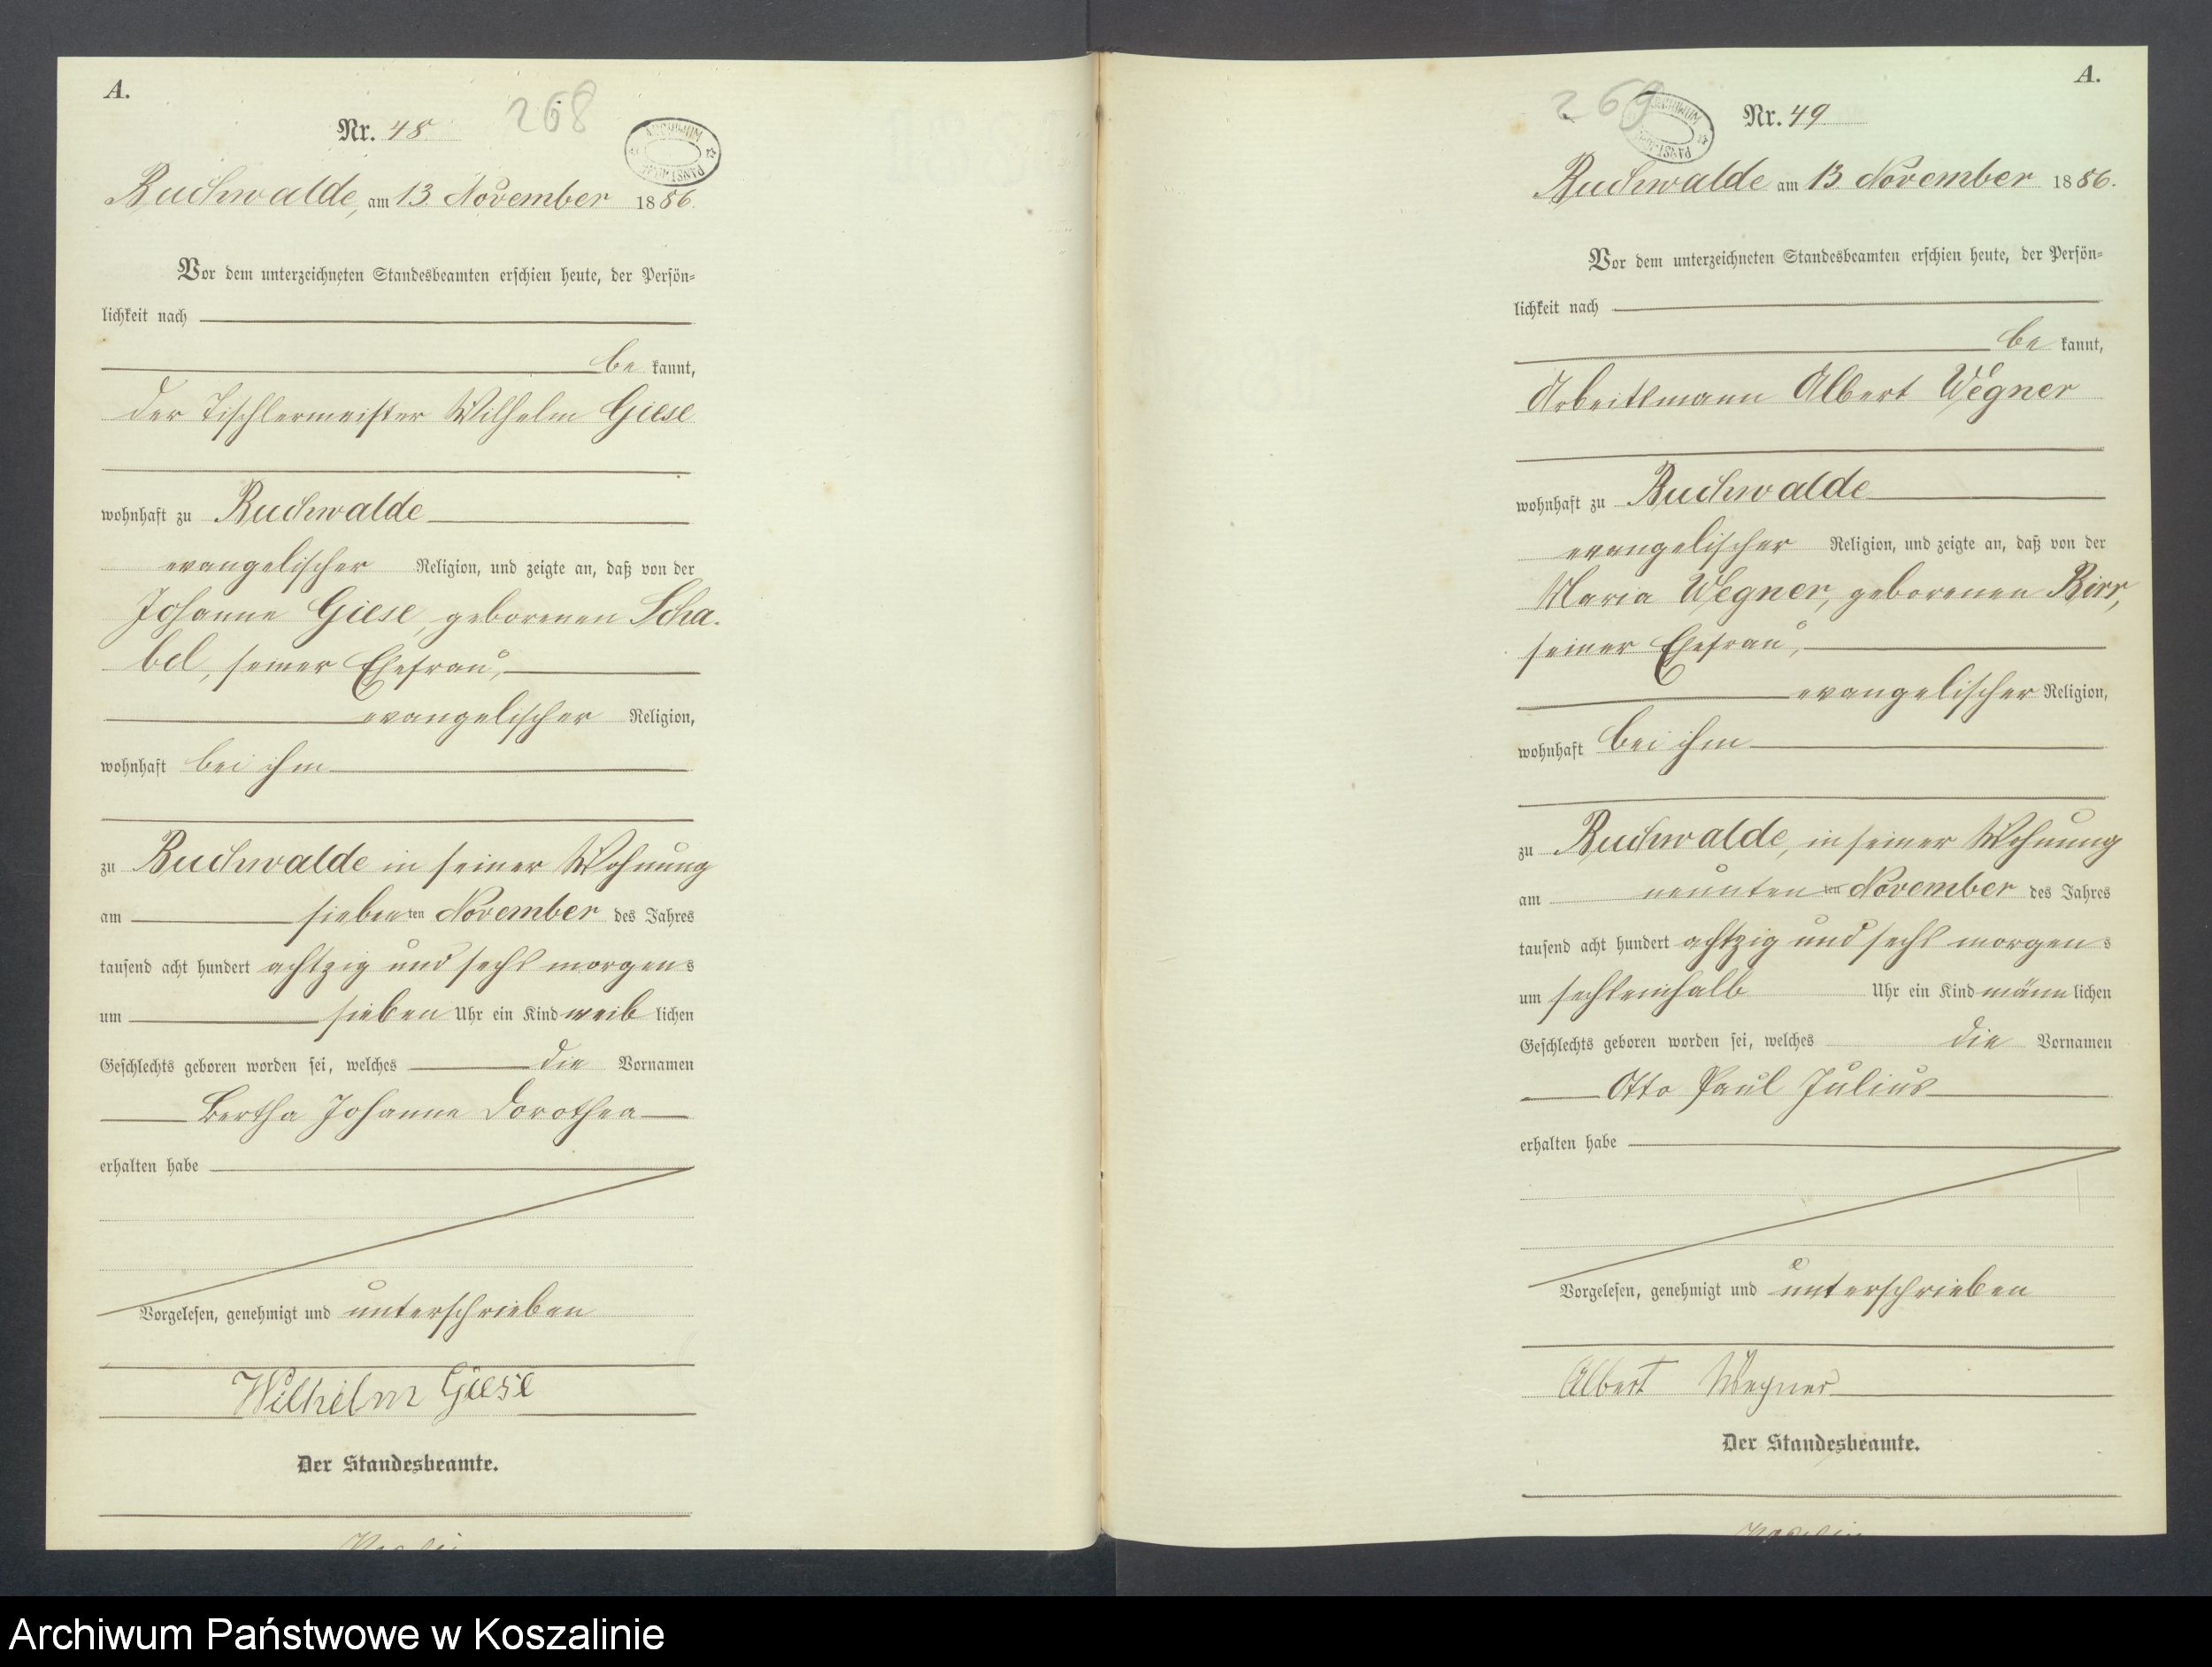 A.
Nr. 48
268
ARCHIWUM PAŃSTW.
Buchwalde, am 13. November 1886.
Vor dem unterzeichneten Standesbeamten erschien heute, der Persön-
lichkeit nach
be kannt,
der Tischlermeister Wilhelm Giese
wohnhaft zu Buchwalde
evangelischer Religion, und zeigte an, daß von der
Johanne Giese, geborenen Scha-
bel, seiner Ehefrau,
evangelischer Religion,
wohnhaft bei ihm
zu Buchwalde in seiner Wohnung
am siebenten November des Jahres
tausend acht hundert achtzig und sechs morgens
um sieben Uhr ein Kind weiblichen
Geschlechts geboren worden sei, welches die Vornamen
Bertha Johanne Dorothea
erhalten habe
Vorgelesen, genehmigt und unterschrieben
Wilhelm Giese
Der Standesbeamte.
A.
269
ARCHIWUM PAŃSTW.
Nr. 49
Buchwalde am 13. November 1886.
Vor dem unterzeichneten Standesbeamten erschien heute, der Persön-
lichkeit nach
be kannt,
Arbeitsmann Albert Wegner
wohnhaft zu Buchwalde
evangelischer Religion, und zeigte an, daß von der
Maria Wegner, geborenen Birr,
seiner Ehefrau,
evangelischer Religion,
wohnhaft bei ihm
zu Buchwalde, in seiner Wohnung
am neunten ten November des Jahres
tausend acht hundert achtzig und sechs morgens
um sechseinhalb Uhr ein Kind männlichen
Geschlechts geboren worden sei, welches die Vornamen
Otto Paul Julius
erhalten habe
Vorgelesen, genehmigt und unterschrieben
Albert Wegner
Der Standesbeamte.
Archiwum Państwowe w Koszalinie